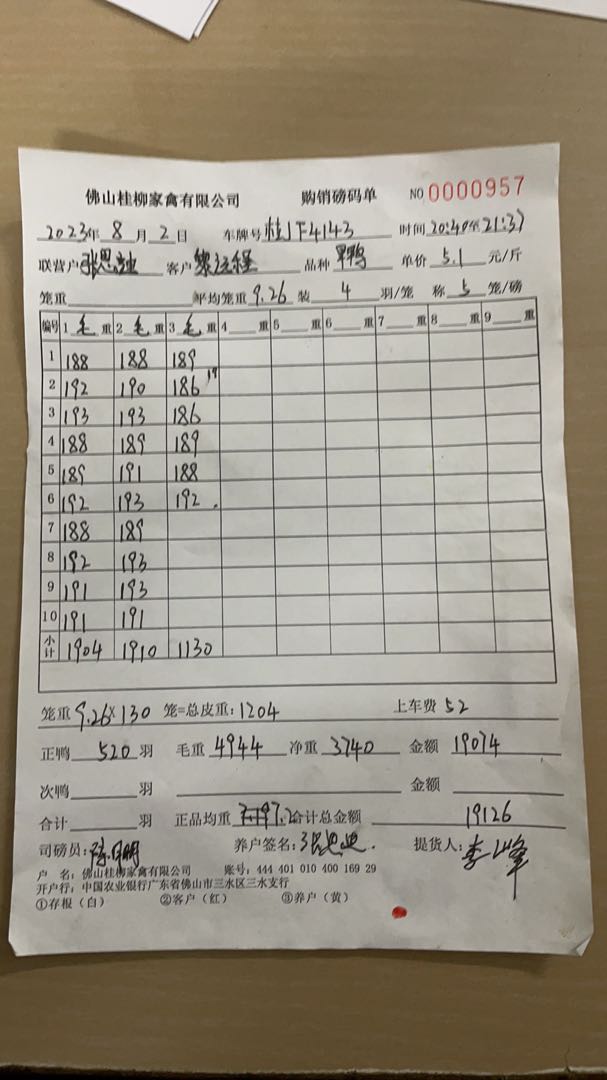 佛山桂柳家禽有限公司 购销磅码单 NO 0000957
2023年 8 月 2 日 车牌号 桂JF4143 时间 20:40至21:37
联营户 张思 客户 黎运程 品种 鸭 单价 5.1 元/斤
笼重 平均笼重 9.26 装 4 羽/笼 称 5 笼/磅
编号 1 毛 重 2 毛 重 3 毛 重 4 重 5 重 6 重 7 重 8 重 9 重
1 188 188 189
2 192 190 186 19
3 193 193 186
4 188 189 189
5 189 191 188
6 192 193 192
7 188 189
8 192 193
9 191 193
10 191 191
小计 1904 1910 1130
笼重 9.26×130 笼=总皮重: 1204 上车费 52
正鸭 520 羽 毛重 4944 净重 3740 金额 19074
次鸭 羽 金额
合计 羽 正品均重 7.2 合计总金额 19126
司磅员: 陈明 养户签名: 张思 提货人: 李峰
户 名: 佛山桂柳家禽有限公司 账号: 444 401 010 400 169 29
开户行: 中国农业银行广东省佛山市三水区三水支行
①存根（白） ②客户（红） ③养户（黄）